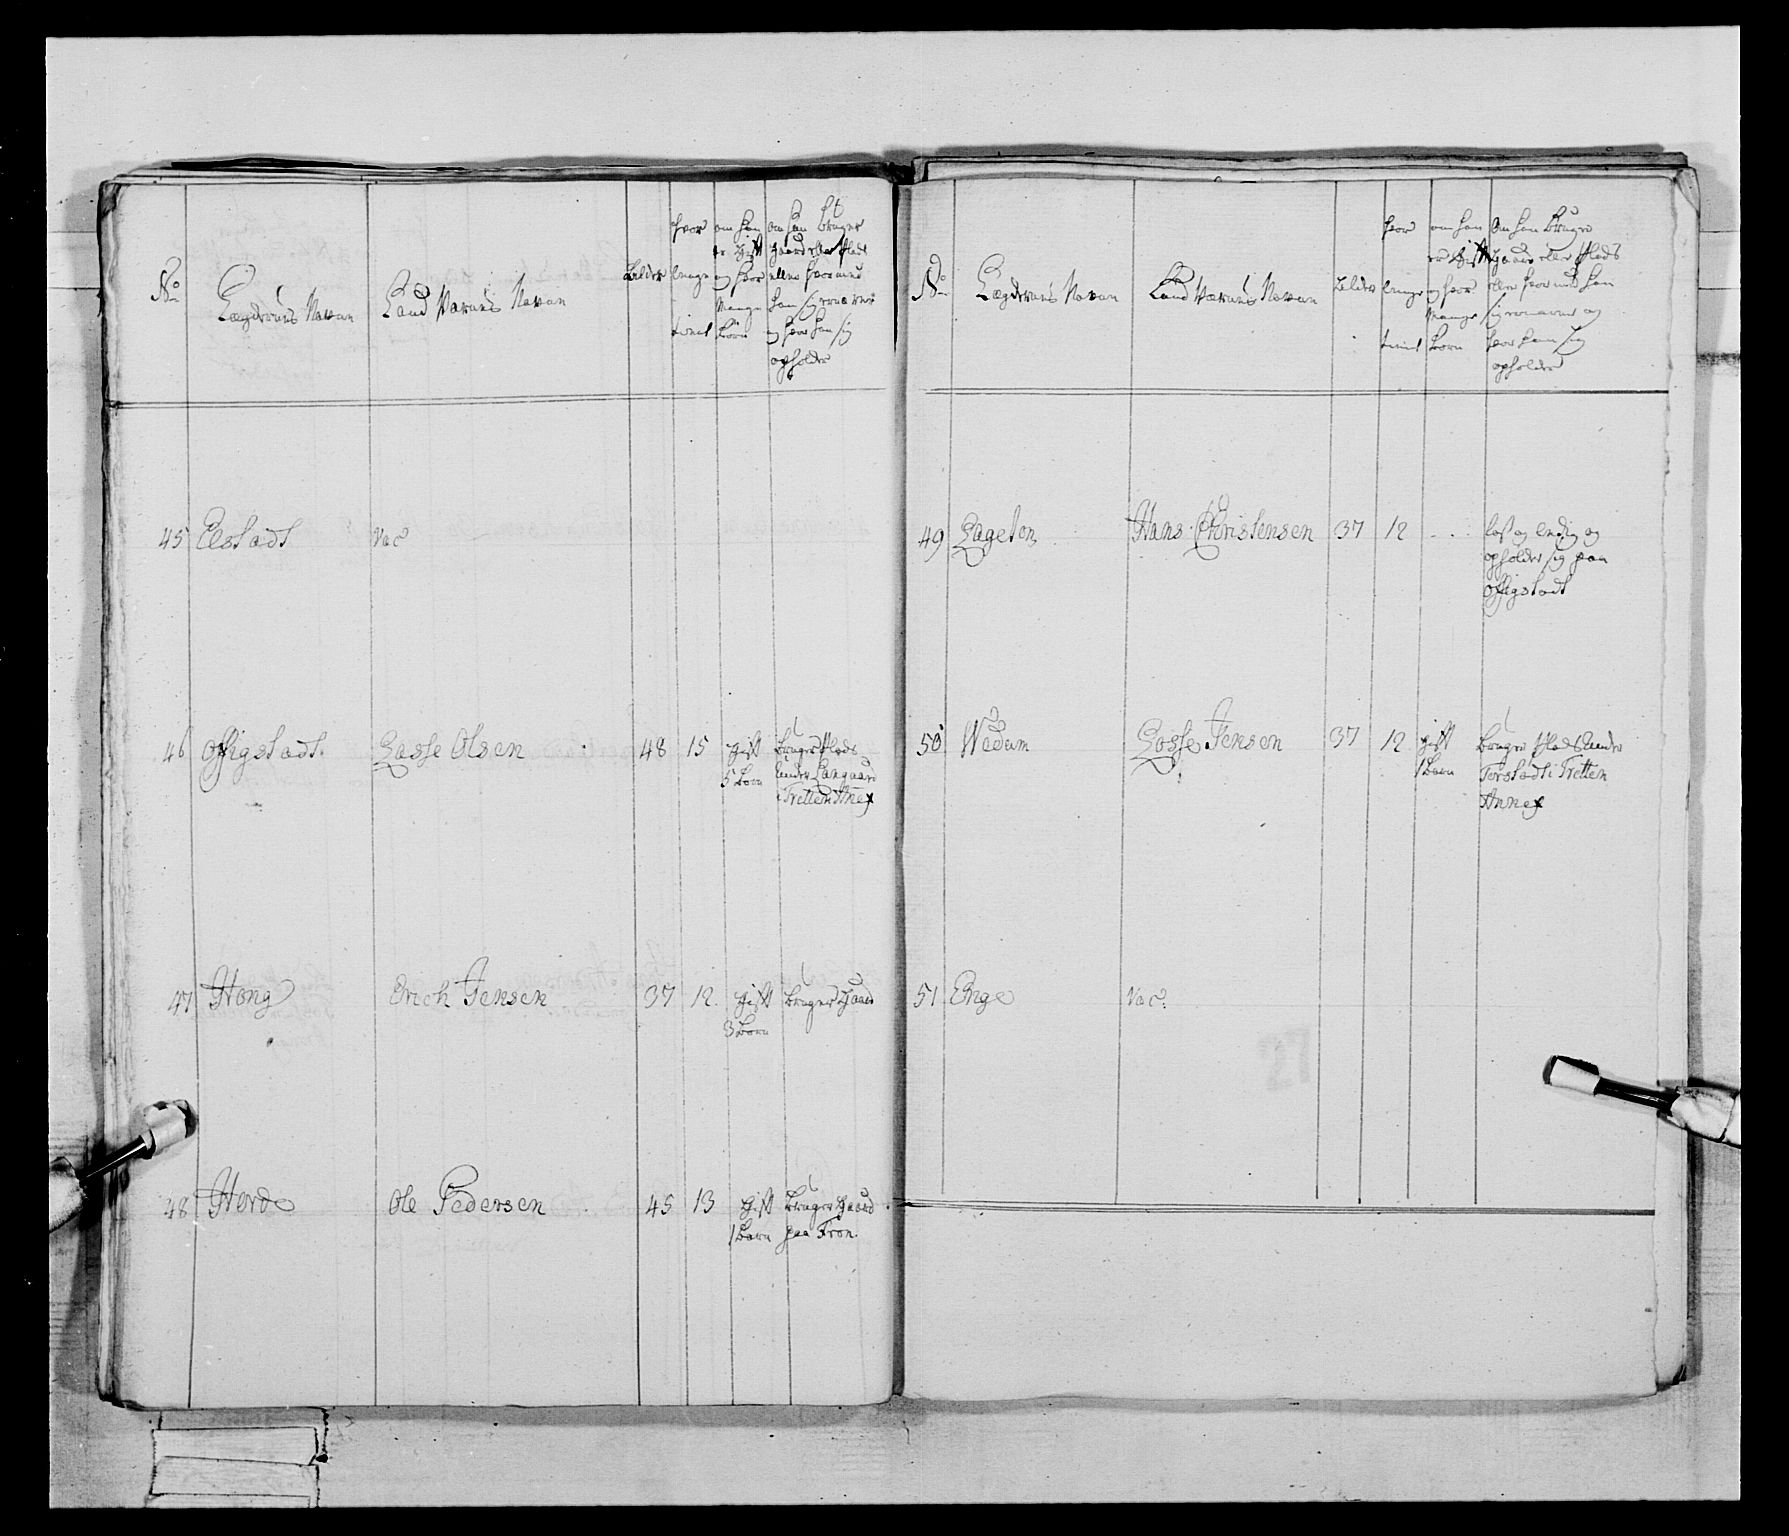 No
Lægdernes Navne
Land Værnes Navne
Alder
hvor
længe
tient
om han
er gift
og hvor
Mange
Børn
om han bruger
Gaard eller Plads
eller hvormed
han sig ernærer
og hvor han sig
opholder
45 Elstadt Vac
46 Offigstadt Lasse Olsen 48 15 gift bruger Plads
5 Børn under Langaard
i Tretten Anex
47 Hong Erich Jensen 37 12 gift bruger Gaard
3 Børn
48 Horde Ole Pedersen 45 13 gift bruger Gaard
1 Barn paa Fron
No
Lægdernes Navne
Land Værnes Navne
Alder
hvor
længe
tient
om han
er gift
og hvor
Mange
Børn
Om han bruger
Gaard eller Plads
eller hvormed han
sig ernærer og
hvor han sig
opholder
49 Lageton Hans Christensen 37 12 løs og ledig og
opholder sig paa
Offigstadt
50 Wedum Losse Jensen 37 12 gift bruger Plads under
1 Barn Torstadt i Tretten
Annex
51 Enge Vac.
27